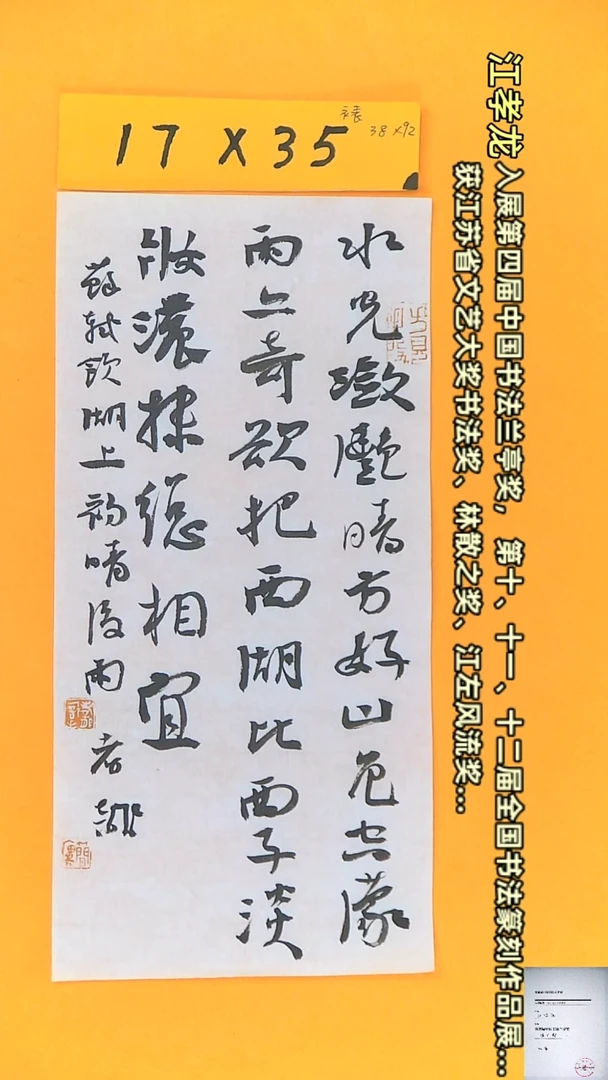 裱 38×92
17 X 35
江孝龙 入展第四届中国书法兰亭奖，第十、十一、十二届全国书法篆刻作品展...
获江苏省文艺大奖书法奖、林散之奖、江左风流奖...
水光瀲灩晴方好山色空濛
雨亦奇欲把西湖比西子淡
妝濃抹總相宜
蘇軾飲湖上初晴後雨
孝龍